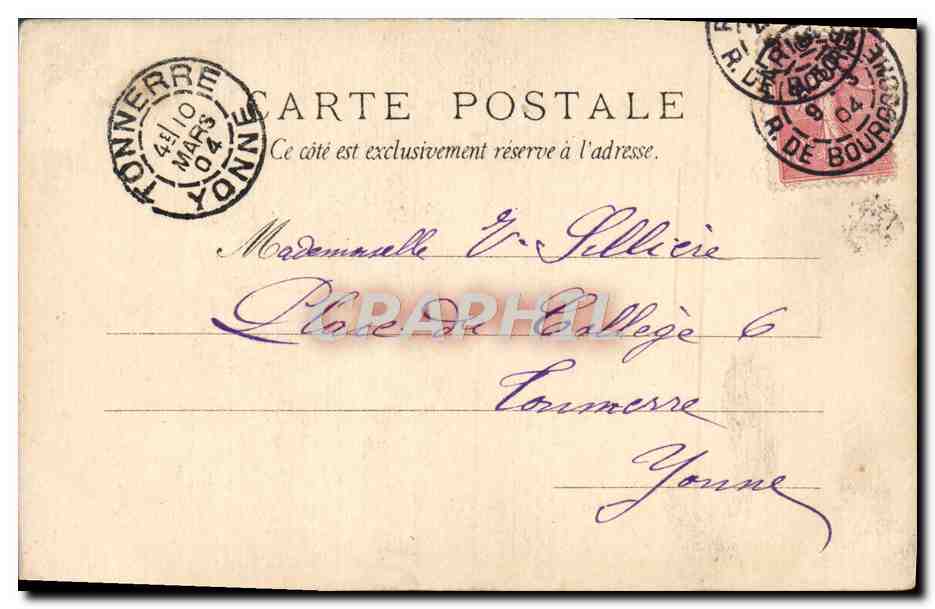 CARTE POSTALE
Ce côté est exclusivement réservé à l'adresse.
TONNERRE
4E 10
MARS
04
YONNE
R. DE BOURGOGNE
04
Mademoiselle V. Sillière
Place du Collège 6
Tonnerre
Yonne
CPAPHIL